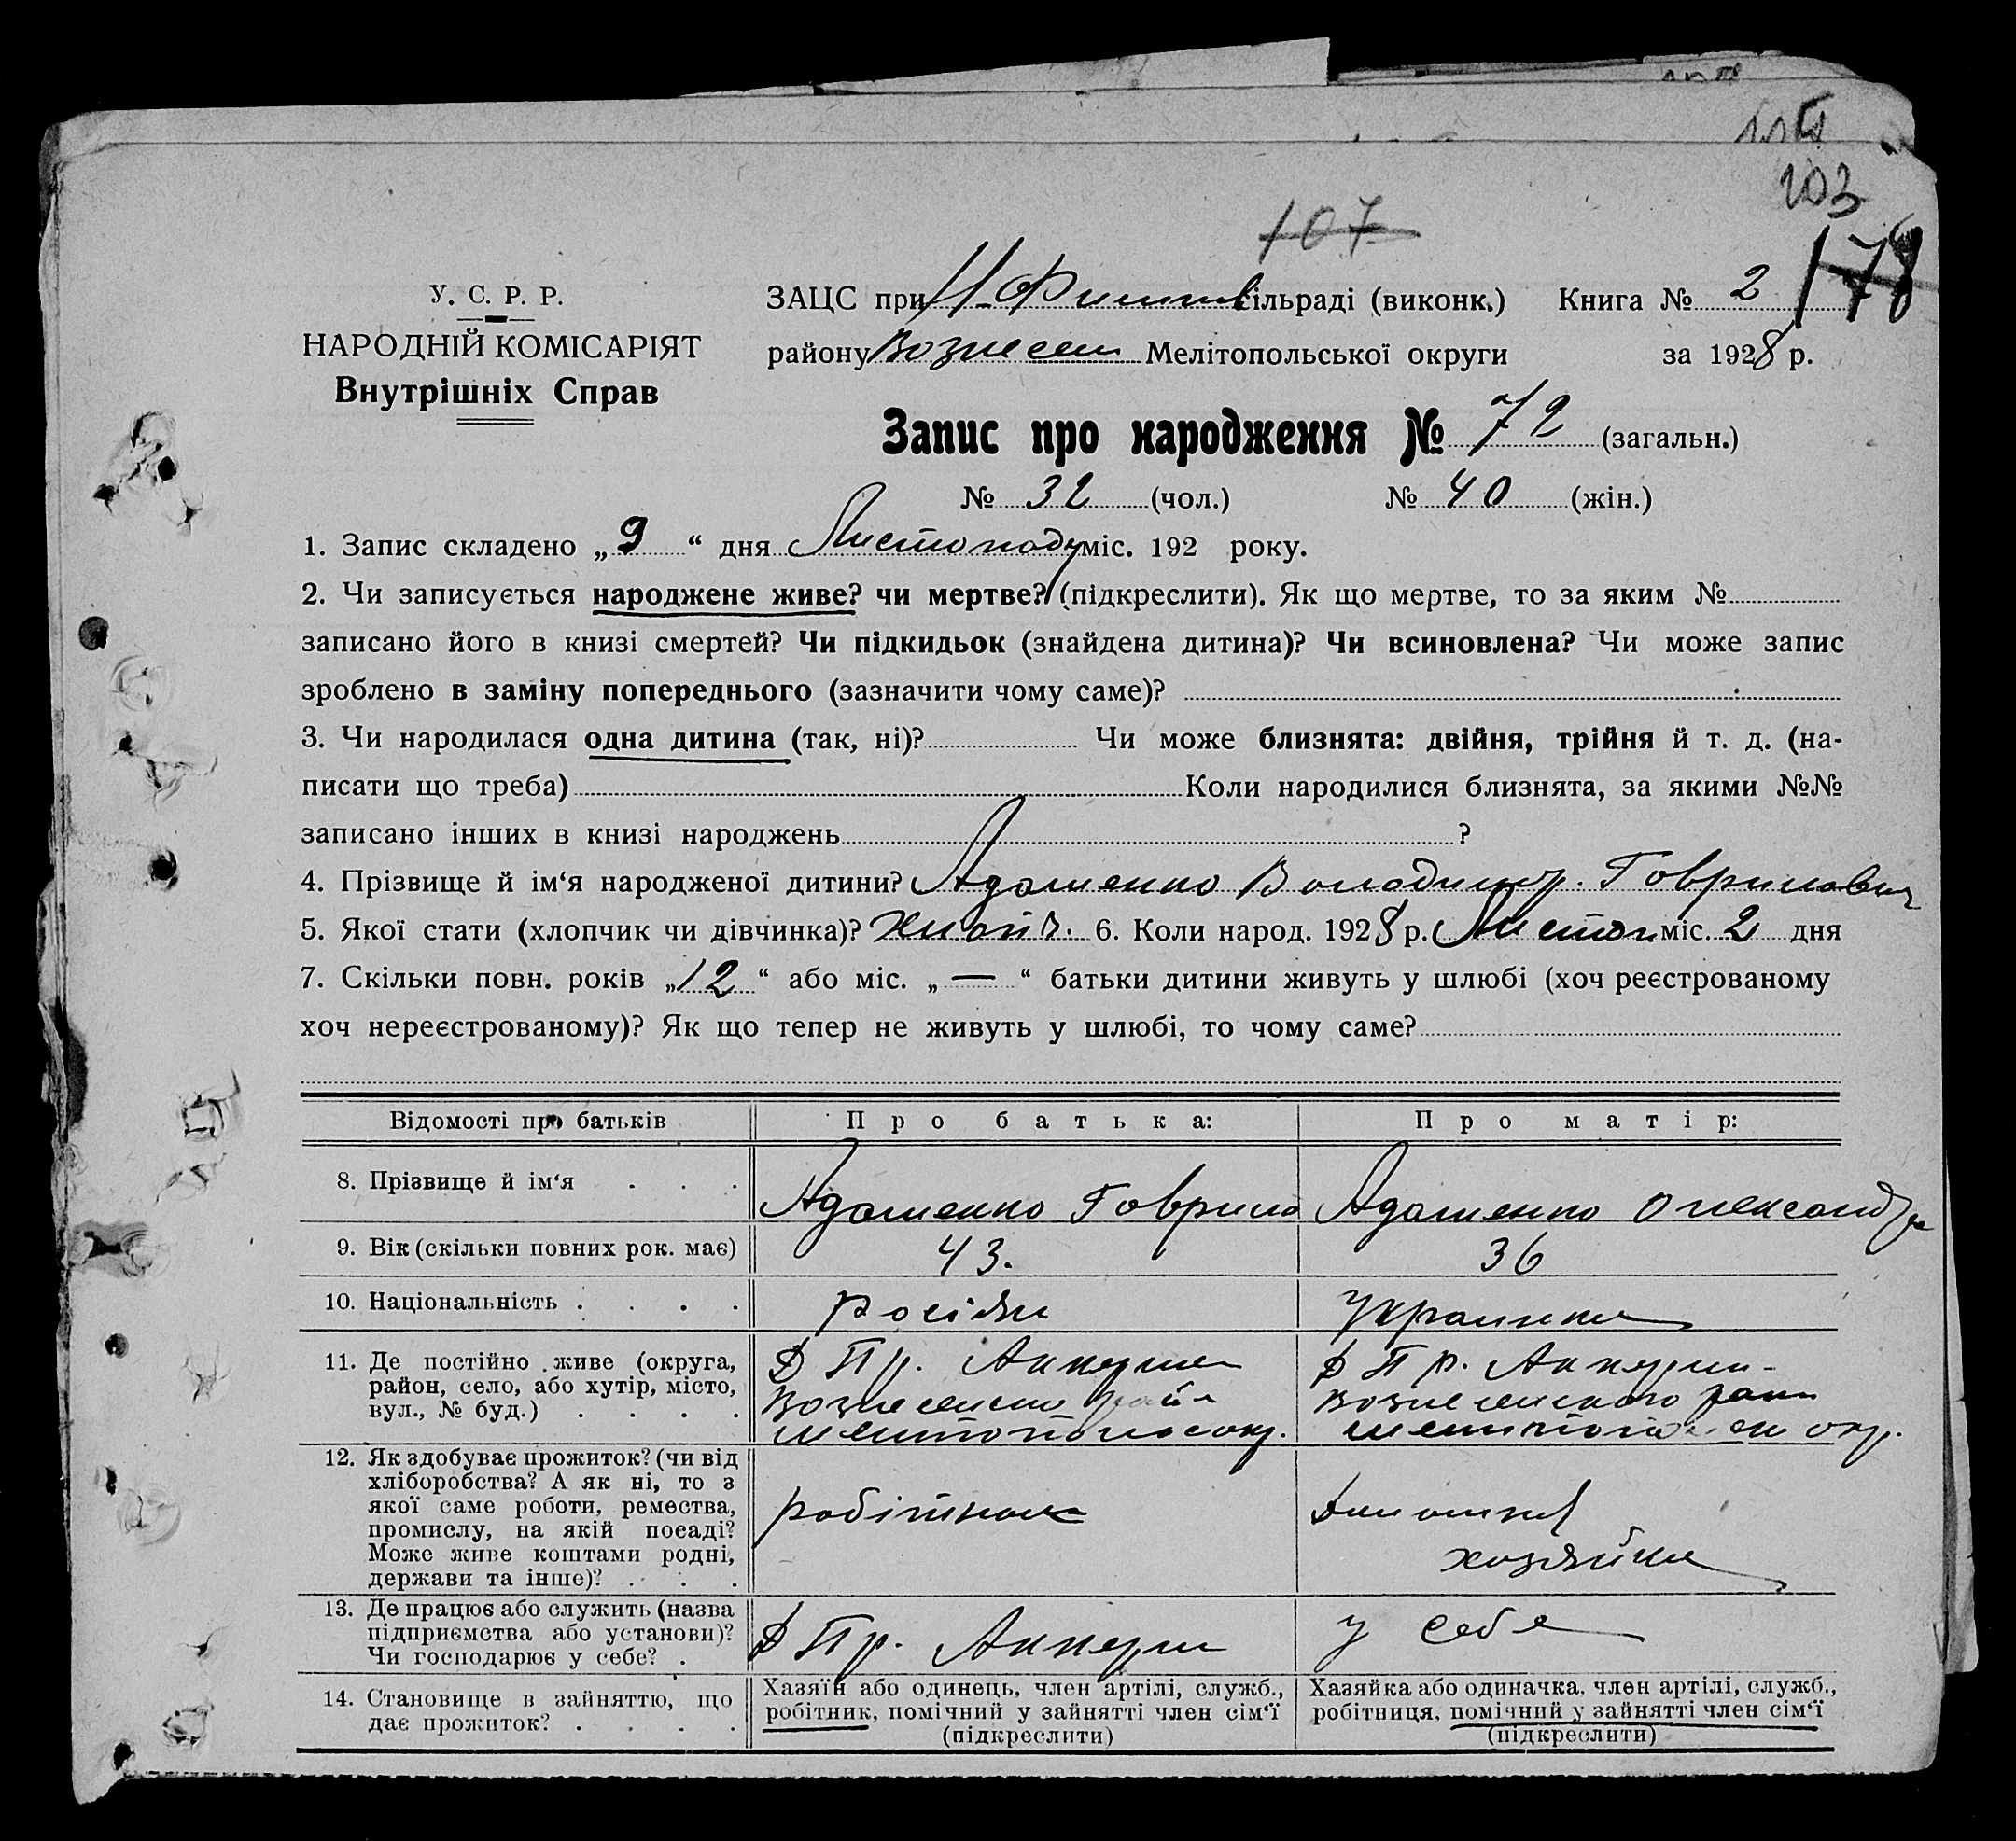 103
107
178
У. С. Р. Р.
НАРОДНІЙ КОМІСАРІЯТ
Внутрішніх Справ
ЗАЦС при сільраді (виконк.) Книга № 2
району Вознесен Мелітопольської округи за 1928 р.
Запис про народження № 72 (загальн.)
№ 32 (чол.) № 40 (жін.)
1. Запис складено „ 9 “ дня Листопаду міс. 192 року.
2. Чи записується народжене живе? чи мертве? (підкреслити). Як що мертве, то за яким №
записано його в книзі смертей? Чи підкидьок (знайдена дитина)? Чи всиновлена? Чи може запис
зроблено в заміну попереднього (зазначити чому саме)?
3. Чи народилася одна дитина (так, ні)? Чи може близнята: двійня, трійня й т. д. (на-
писати що треба) Коли народилися близнята, за якими №№
записано інших в книзі народжень ?
4. Прізвище й ім‘я народженої дитини? Адаменко Володимир. Говрилович
5. Якої стати (хлопчик чи дівчинка)? Хлопч. 6. Коли народ. 1928 р. Листоп міс. 2 дня
7. Скільки повн. років „ 12 “ або міс. „ — “ батьки дитини живуть у шлюбі (хоч реєстрованому
хоч нереєстрованому)? Як що тепер не живуть у шлюбі, то чому саме?
Відомості про батьків Про батька: Про матір:
8. Прізвище й ім‘я . . . Адаменко Говрило Адаменко Олександра
9. Вік (скільки повних рок. має) 43. 36
10. Національність . . . . Росіян Украинка
11. Де постійно живе (округа, Пр. Аккермен Пр. Аккермен-
район, село, або хутір, місто, Вознесенско рай Вознесенского рай
вул., № буд.) . . . . окр. окр.
12. Як здобуває прожиток? (чи від
хліборобства? А як ні, то з
якої саме роботи, ремества, робітник
промислу, на якій посаді?
Може живе коштами родні, хозяйка
держави та інше)? . . .
13. Де працює або служить (назва
підприємства або установи)? Пр. Аккерм у себе
Чи господарює у себе? .
14. Становище в зайняттю, що Хазяїн або одинець, член артілі, служб., Хазяйка або одиначка, член артілі, служб.,
дає прожиток? . . . . робітник, помічний у зайнятті член сім‘ї робітниця, помічний у зайнятті член сім‘ї
(підкреслити) (підкреслити)